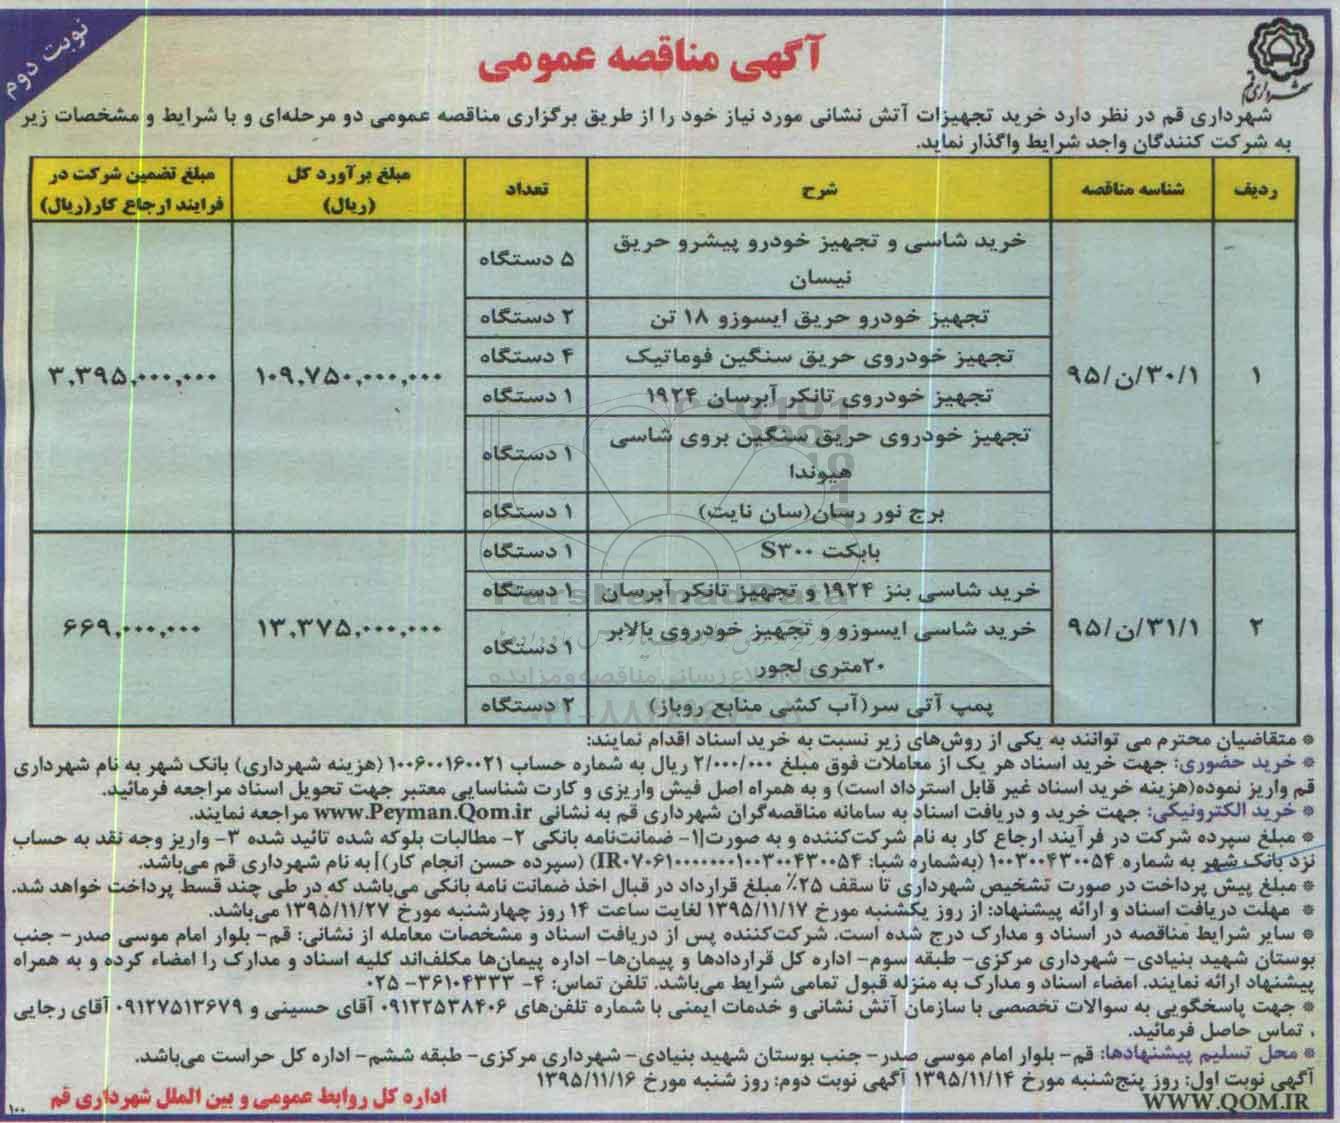 نوبت دوم
شهرداری قم
آگهی مناقصه عمومی
شهرداری قم در نظر دارد خرید تجهیزات آتش نشانی مورد نیاز خود را از طریق برگزاری مناقصه عمومی دو مرحله‌ای و با شرایط و مشخصات زیر
به شرکت کنندگان واجد شرایط واگذار نماید.
ردیف شناسه مناقصه شرح تعداد مبلغ برآورد کل (ریال) مبلغ تضمین شرکت در فرایند ارجاع کار(ریال)
۱ ۳۰/۱/ن/۹۵ ۱۰۹,۷۵۰,۰۰۰,۰۰۰ ۳,۳۹۵,۰۰۰,۰۰۰
خرید شاسی و تجهیز خودرو پیشرو حریق
نیسان ۵ دستگاه
تجهیز خودرو حریق ایسوزو ۱۸ تن ۲ دستگاه
تجهیز خودروی حریق سنگین فوماتیک ۴ دستگاه
تجهیز خودروی تانکر آبرسان ۱۹۲۴ ۱ دستگاه
تجهیز خودروی حریق سنگین بروی شاسی
هیوندا ۱ دستگاه
برج نور رسان(سان نایت) ۱ دستگاه
۲ ۳۱/۱/ن/۹۵ ۱۳,۳۷۵,۰۰۰,۰۰۰ ۶۶۹,۰۰۰,۰۰۰
بابکت S۳۰۰ ۱ دستگاه
خرید شاسی بنز ۱۹۲۴ و تجهیز تانکر آبرسان ۱ دستگاه
خرید شاسی ایسوزو و تجهیز خودروی بالابر
۲۰متری لجور ۱ دستگاه
پمپ آتی سر(آب کشی منابع روباز) ۲ دستگاه
ParsNamadData
* متقاضیان محترم می توانند به یکی از روش‌های زیر نسبت به خرید اسناد اقدام نمایند:
* خرید حضوری: جهت خرید اسناد هر یک از معاملات فوق مبلغ ۲/۰۰۰/۰۰۰ ریال به شماره حساب ۱۰۰۶۰۰۱۶۰۰۲۱ (هزینه شهرداری) بانک شهر به نام شهرداری
قم واریز نموده(هزینه خرید اسناد غیر قابل استرداد است) و به همراه اصل فیش واریزی و کارت شناسایی معتبر جهت تحویل اسناد مراجعه فرمائید.
* خرید الکترونیکی: جهت خرید و دریافت اسناد به سامانه مناقصه‌گران شهرداری قم به نشانی www.Peyman.Qom.ir مراجعه نمایند.
* مبلغ سپرده شرکت در فرآیند ارجاع کار به نام شرکت‌کننده و به صورت[۱- ضمانت‌نامه بانکی ۲- مطالبات بلوکه شده تائید شده ۳- واریز وجه نقد به حساب
نزد بانک شهر به شماره ۱۰۰۳۰۰۴۳۰۰۵۴ (به‌شماره شبا: IR۰۷۰۶۱۰۰۰۰۰۰۰۱۰۰۳۰۰۴۳۰۰۵۴) (سپرده حسن انجام کار)] به نام شهرداری قم می‌باشد.
* مبلغ پیش پرداخت در صورت تشخیص شهرداری تا سقف ۲۵٪ مبلغ قرارداد در قبال اخذ ضمانت نامه بانکی می‌باشد که در طی چند قسط پرداخت خواهد شد.
* مهلت دریافت اسناد و ارائه پیشنهاد: از روز یکشنبه مورخ ۱۳۹۵/۱۱/۱۷ لغایت ساعت ۱۴ روز چهارشنبه مورخ ۱۳۹۵/۱۱/۲۷ می‌باشد.
* سایر شرایط مناقصه در اسناد و مدارک درج شده است. شرکت‌کننده پس از دریافت اسناد و مشخصات معامله از نشانی: قم- بلوار امام موسی صدر- جنب
بوستان شهید بنیادی- شهرداری مرکزی- طبقه سوم- اداره کل قراردادها و پیمان‌ها- اداره پیمان‌ها مکلف‌اند کلیه اسناد و مدارک را امضاء کرده و به همراه
پیشنهاد ارائه نمایند. امضاء اسناد و مدارک به منزله قبول تمامی شرایط می‌باشد. تلفن تماس: ۴- ۳۶۱۰۴۳۳۳- ۰۲۵
* جهت پاسخگویی به سوالات تخصصی با سازمان آتش نشانی و خدمات ایمنی با شماره تلفن‌های ۰۹۱۲۲۵۳۸۴۰۶ آقای حسینی و ۰۹۱۲۷۵۱۳۶۷۹ آقای رجایی
، تماس حاصل فرمائید.
* محل تسلیم پیشنهادها: قم- بلوار امام موسی صدر- جنب بوستان شهید بنیادی- شهرداری مرکزی- طبقه ششم- اداره کل حراست می‌باشد.
آگهی نوبت اول: روز پنج‌شنبه مورخ ۱۳۹۵/۱۱/۱۴ آگهی نوبت دوم: روز شنبه مورخ ۱۳۹۵/۱۱/۱۶
WWW.QOM.IR
اداره کل روابط عمومی و بین الملل شهرداری قم
۱۰۰